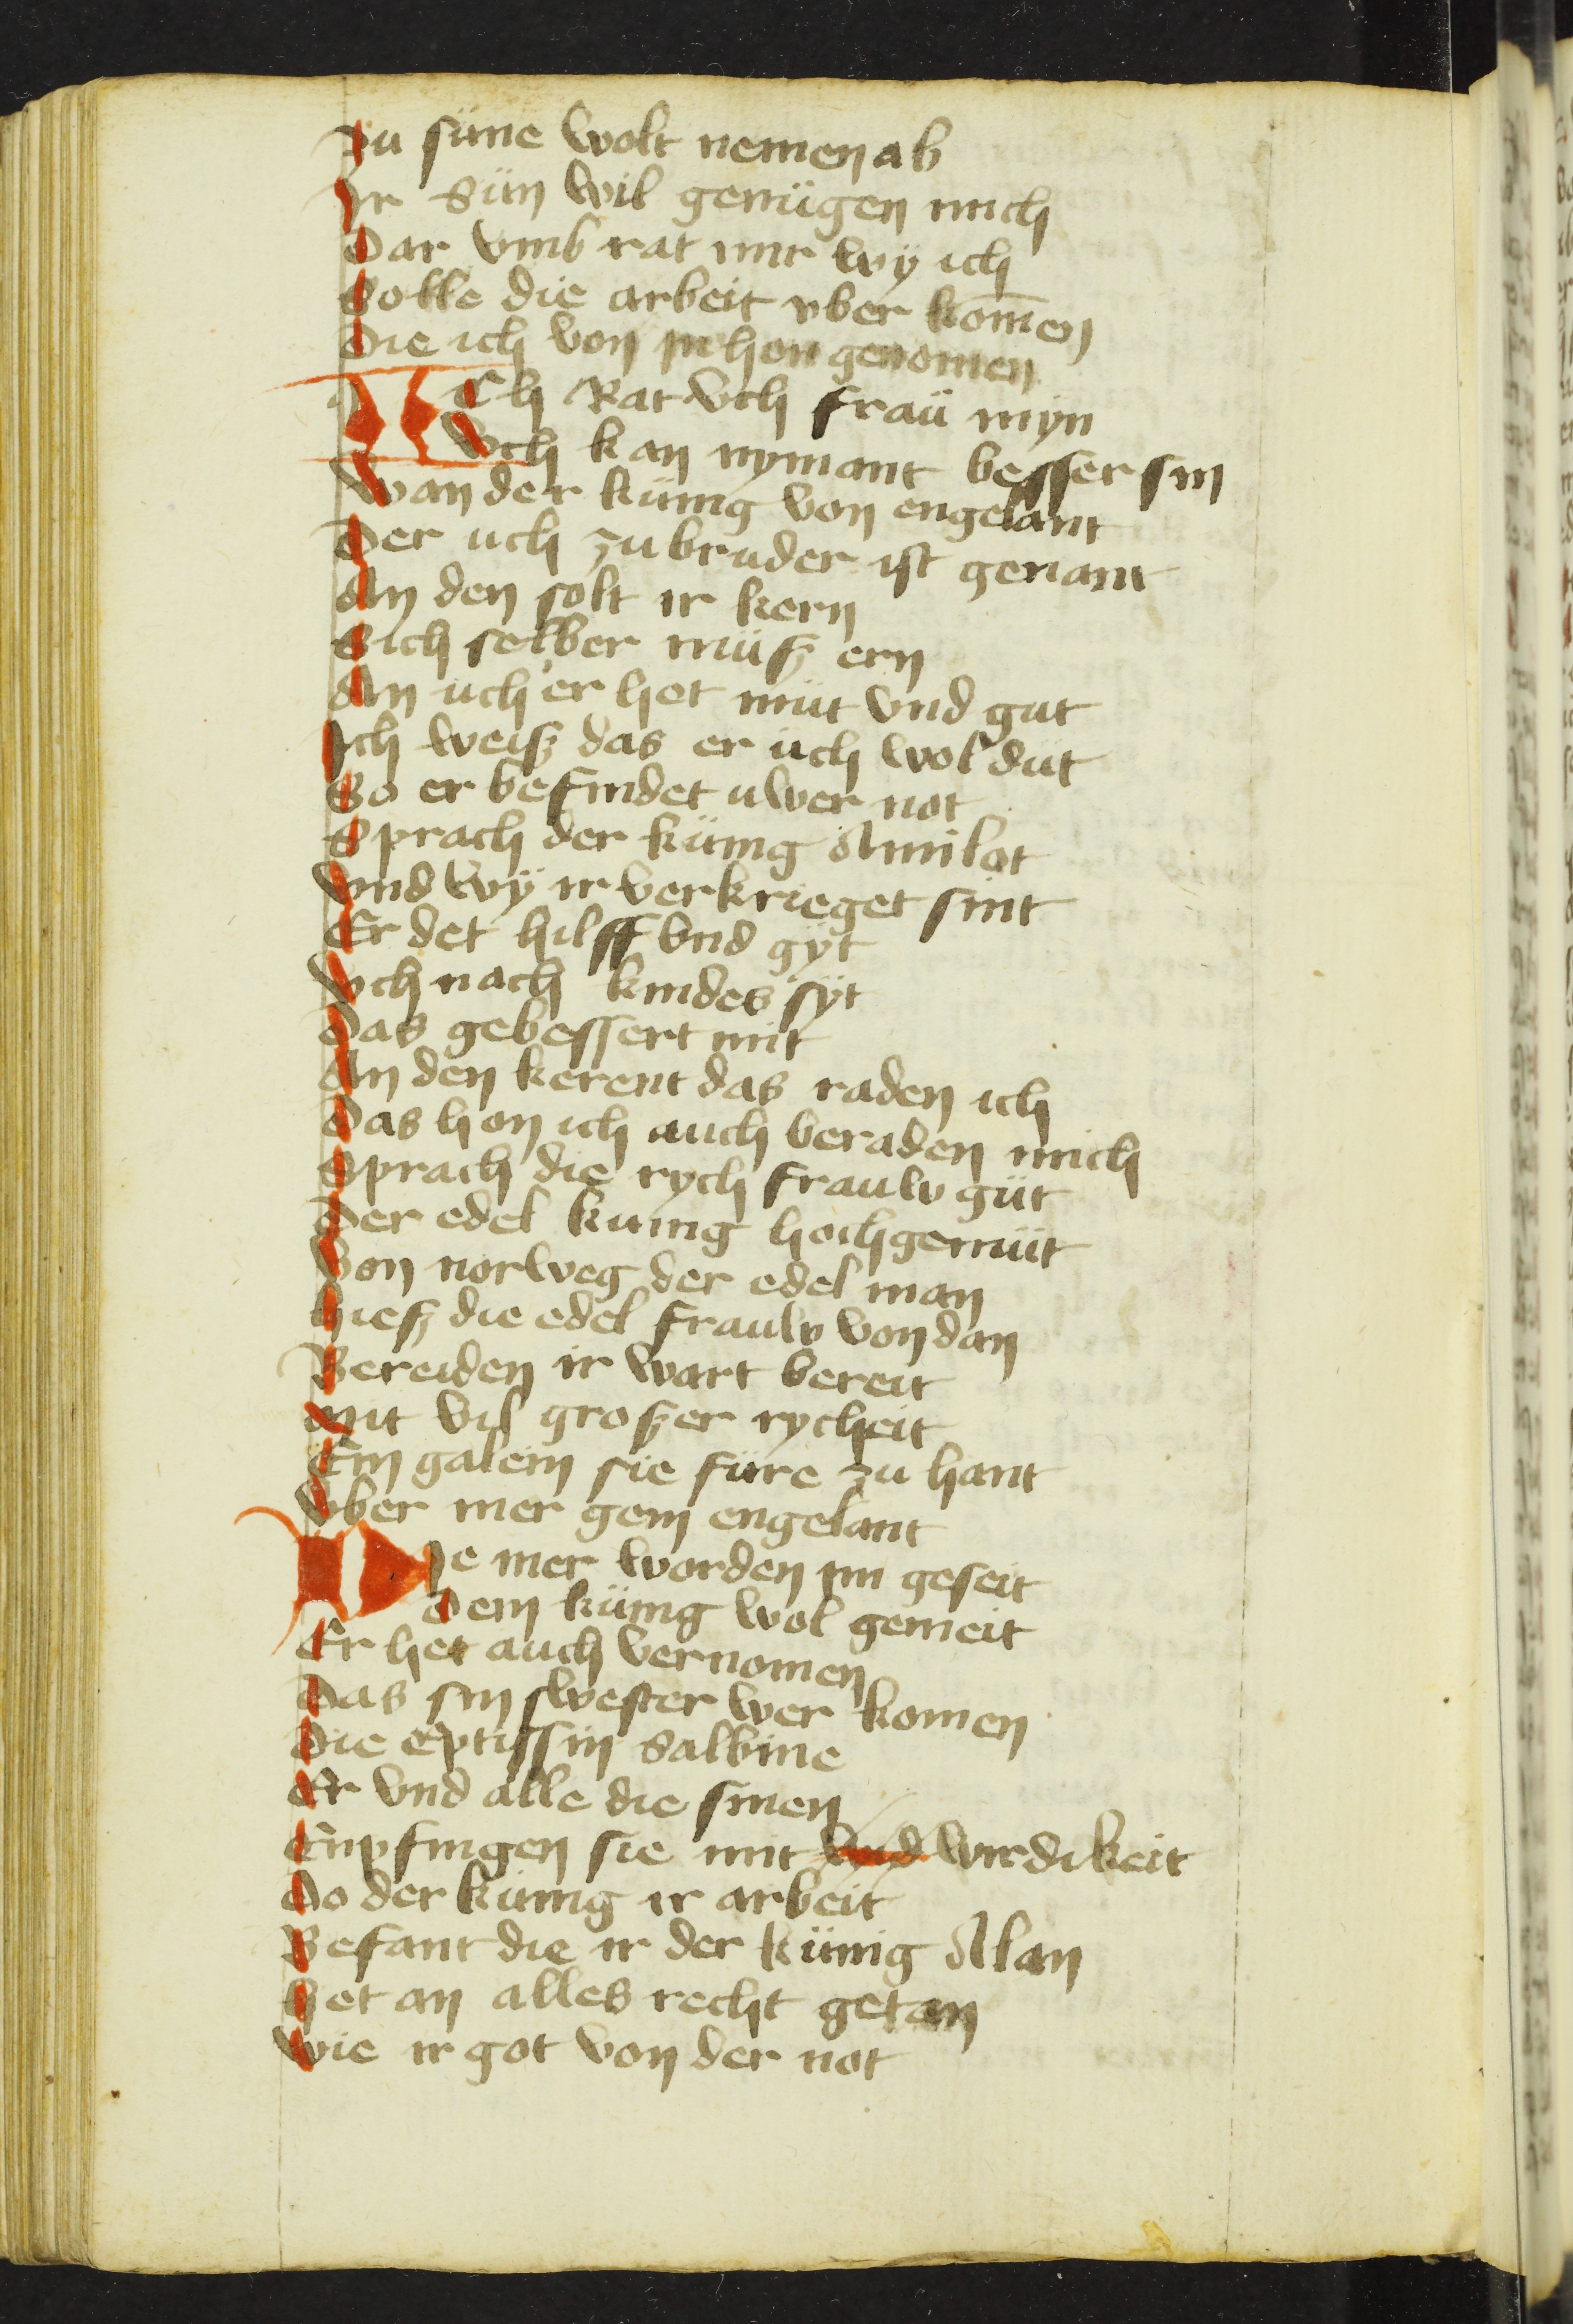 Zu süne wolt nemen ab
Ir Sün wil genügen mich
Dar vmb rat mir wÿ ich
Solle die arbeit vber kom̄en
Die ich von im hon genomen
ICh Rat vch fraü mÿn
Vch kan nÿmant besser sin
Wan der künig von engelant
Der uch zu bruder ist genant
An den solt ir kern
Sich selber müsz ern
An üch er het müt vnd gut
Ich weisz das er üch wol dut
So er befindet uwer not
Sprach der künig Amilot
Vnd wÿ ir verkrieget sint
Er det hilff vnd gÿt
Vch nach kindes sÿt
Das gebessert mit
An den kerent das raden ich
Das hon ich auch beraden mich
Sprach die rych frauw güt
Der edel kunig hochgemüt
Von norweg der edel man
Hiesz die edel frauw von dan
Bereiden ir wart bereit
Mit vil groszer rycheit
Ein galein sie füre zu hant
Vber mer gein engelant
DIe mer worden im geseit
Dem künig wol gemeit
Er het auch vernomen
Das sin swester wer komen
Die Eptissin Salbine
Er vnd alle die sinen
Enpfingen sie mit vnd wirdikeit
Do der künig ir arbeit
Befant die ir der künig Alan
Het an alles recht getan
Wie ir got von der not